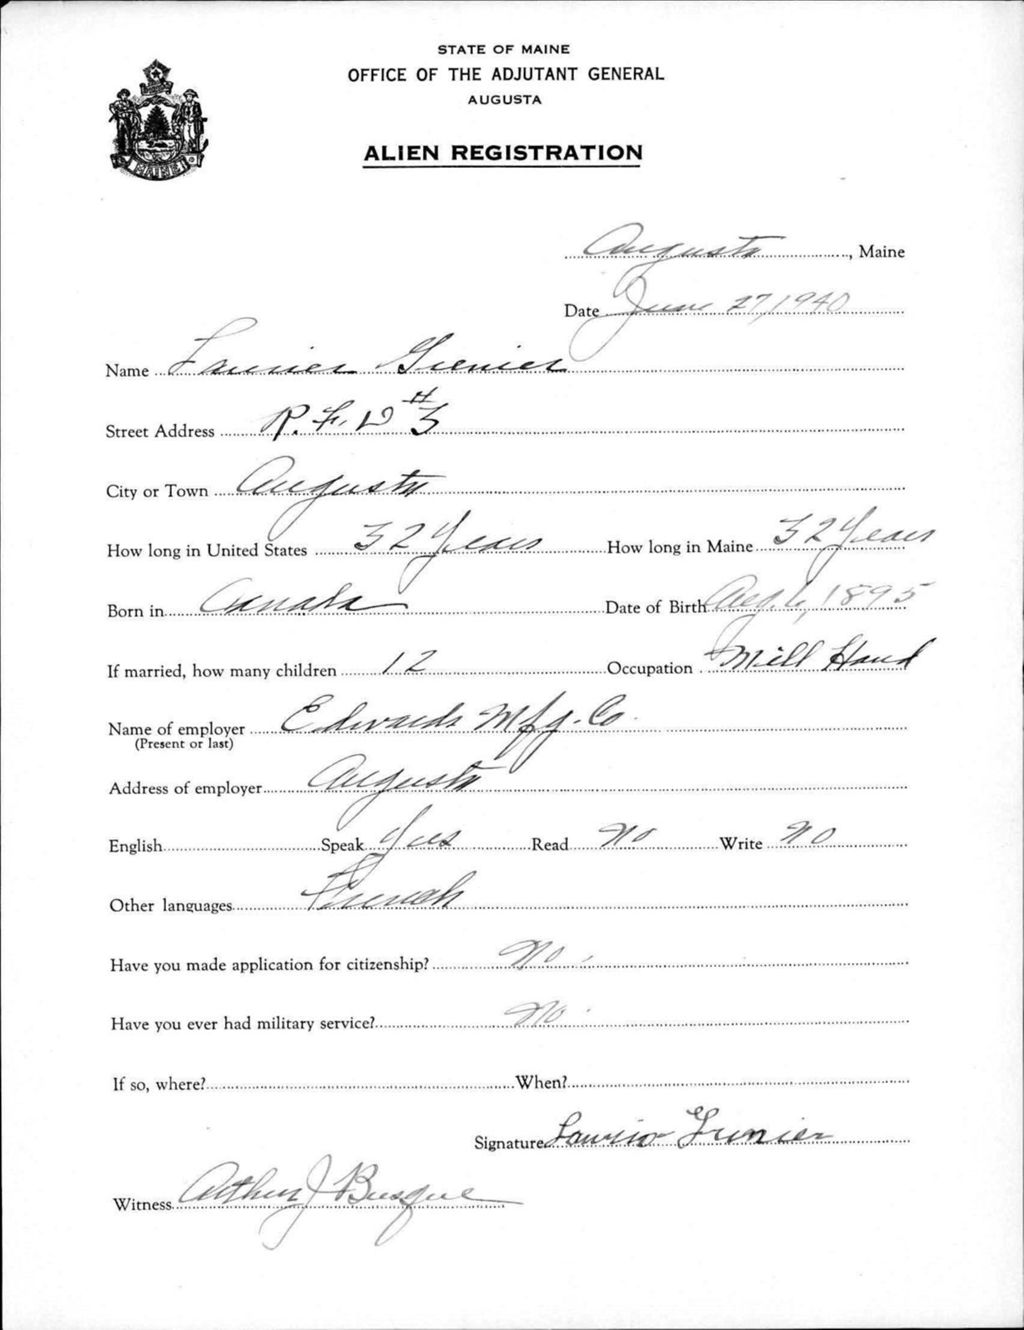 STATE OF MAINE
OFFICE OF THE ADJUTANT GENERAL
AUGUSTA
ALIEN REGISTRATION
MAINE
Augusta, Maine
Date June 27, 1940
Name Laurier Grenier
Street Address R.F.D #3
City or Town Augusta
How long in United States 32 Years How long in Maine 32 Years
Born in Canada Date of Birth Aug 6, 1895
If married, how many children 12 Occupation Mill Hand
Name of employer Edwards Mfg. Co.
(Present or last)
Address of employer Augusta
English Speak Yes Read No Write No
Other languages French
Have you made application for citizenship? No.
Have you ever had military service? No.
If so, where? When?
Signature Grenier
Witness Arthur J Busque